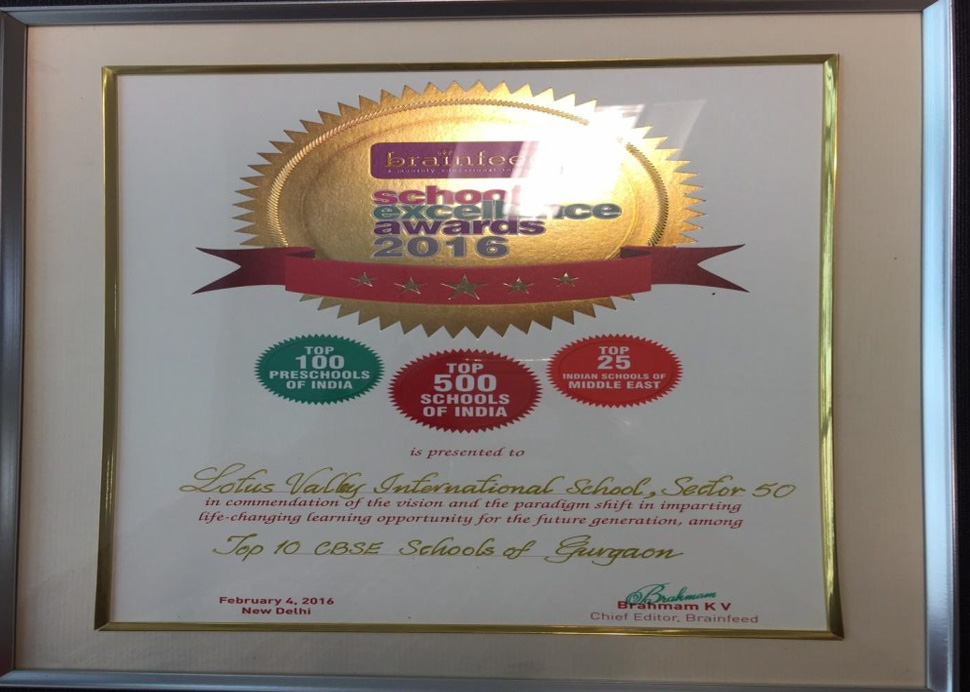 brainfee
school
excellence
awards
2016
TOP
100
PRESCHOOLS
OF INDIA
TOP
500
SCHOOLS
OF INDIA
TOP
25
INDIAN SCHOOLS OF
MIDDLE EAST
is presented to
Lotus Valley International School, Sector 50
in commendation of the vision and the paradigm shift in imparting
life-changing learning opportunity for the future generation, among
Top 10 CBSE Schools of Gurgaon
February 4, 2016
New Delhi
Brahmam
Brahmam K V
Chief Editor, Brainfeed